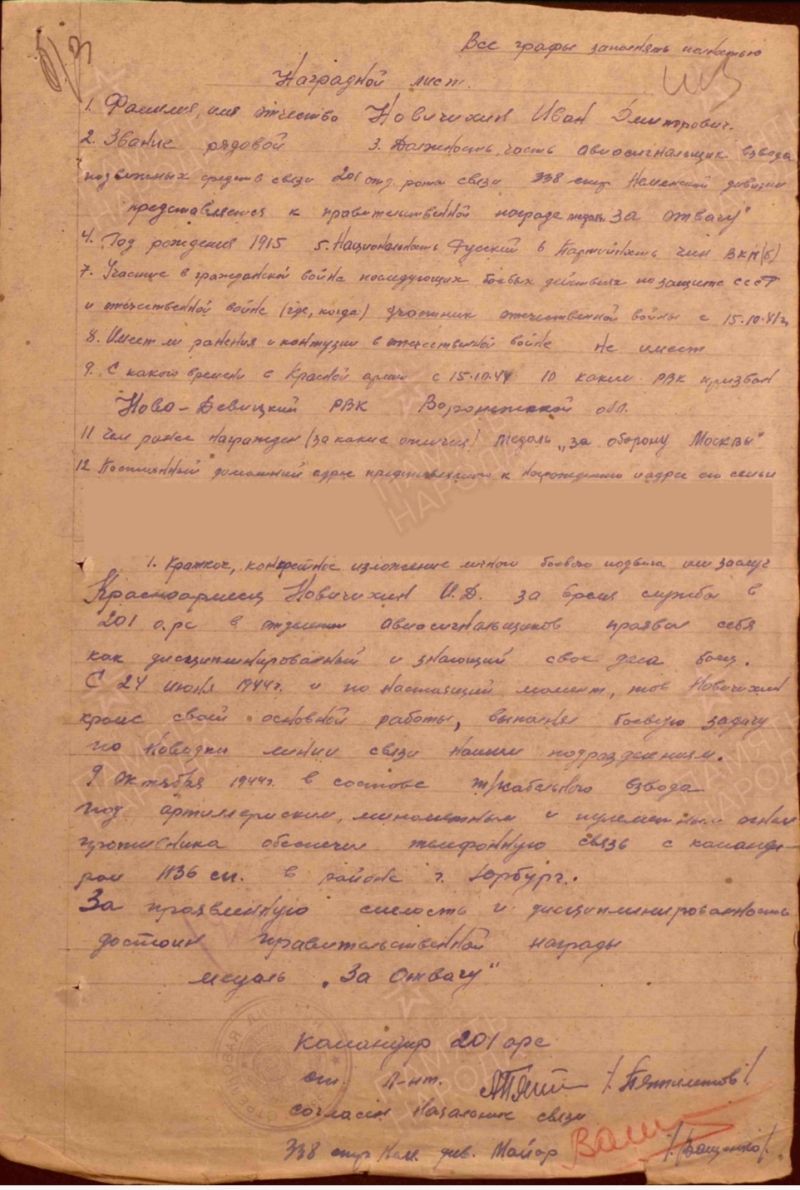 Все графы заполнять полностью
Наградной лист.
1. Фамилия, имя отчество Новичихин Иван Дмитрович.
2. Звание рядовой 3. Должность, часть авиосигнальщик взвода
подвижных средств связи 201 отд. рота связи 338 стр Неменской дивизии
представляется к правительственной награде медаль "За отвагу"
4. Год рождения 1915 5. Национальность Русский 6 Партийность член ВКП(б)
7. Участие в гражданской войне последующих боевых действиях по защите СССР
и отечественной войне (где, когда) участник отечественной войны с 15.10.41г.
8. Имеет ли ранения и контузии в отечественной войне не имеет
9. С какого времени в Красной армии с 15.10.41 10 каким РВК призван
Ново-Девицкий РВК Воронежской обл.
11 Чем ранее награжден (за какие отличия) медаль "за оборону Москвы"
12 Постоянный домашний адрес представляемого к награждению и адрес его семьи
1. Краткое, конкретное изложение личного боевого подвига или заслуг
Красноармеец Новичихин И.Д. за время службы в
201 орс в отделении авиосигнальщиков проявил себя
как дисциплинированный и знающий свое дело боец.
С 24 июня 1944г. и по настоящий момент, тов Новичихин
кроме своей основной работы, выполнял боевую задачу
по наводки линии связи нашим подразделениям.
9 Октября 1944г. в составе т/кабельного взвода
под артиллерийским, минометным и пулеметным огнем
противника обеспечил телефонную связь с команди-
ром 1136 сп. в районе г. Юрбург.
За проявленную смелость и дисциплинированность
достоин правительственной награды
медаль "За отвагу"
Командир 201 орс
ст. л-нт.
согласен Начальник связи
338 стр Нем. див. Майор /Ващенко/.